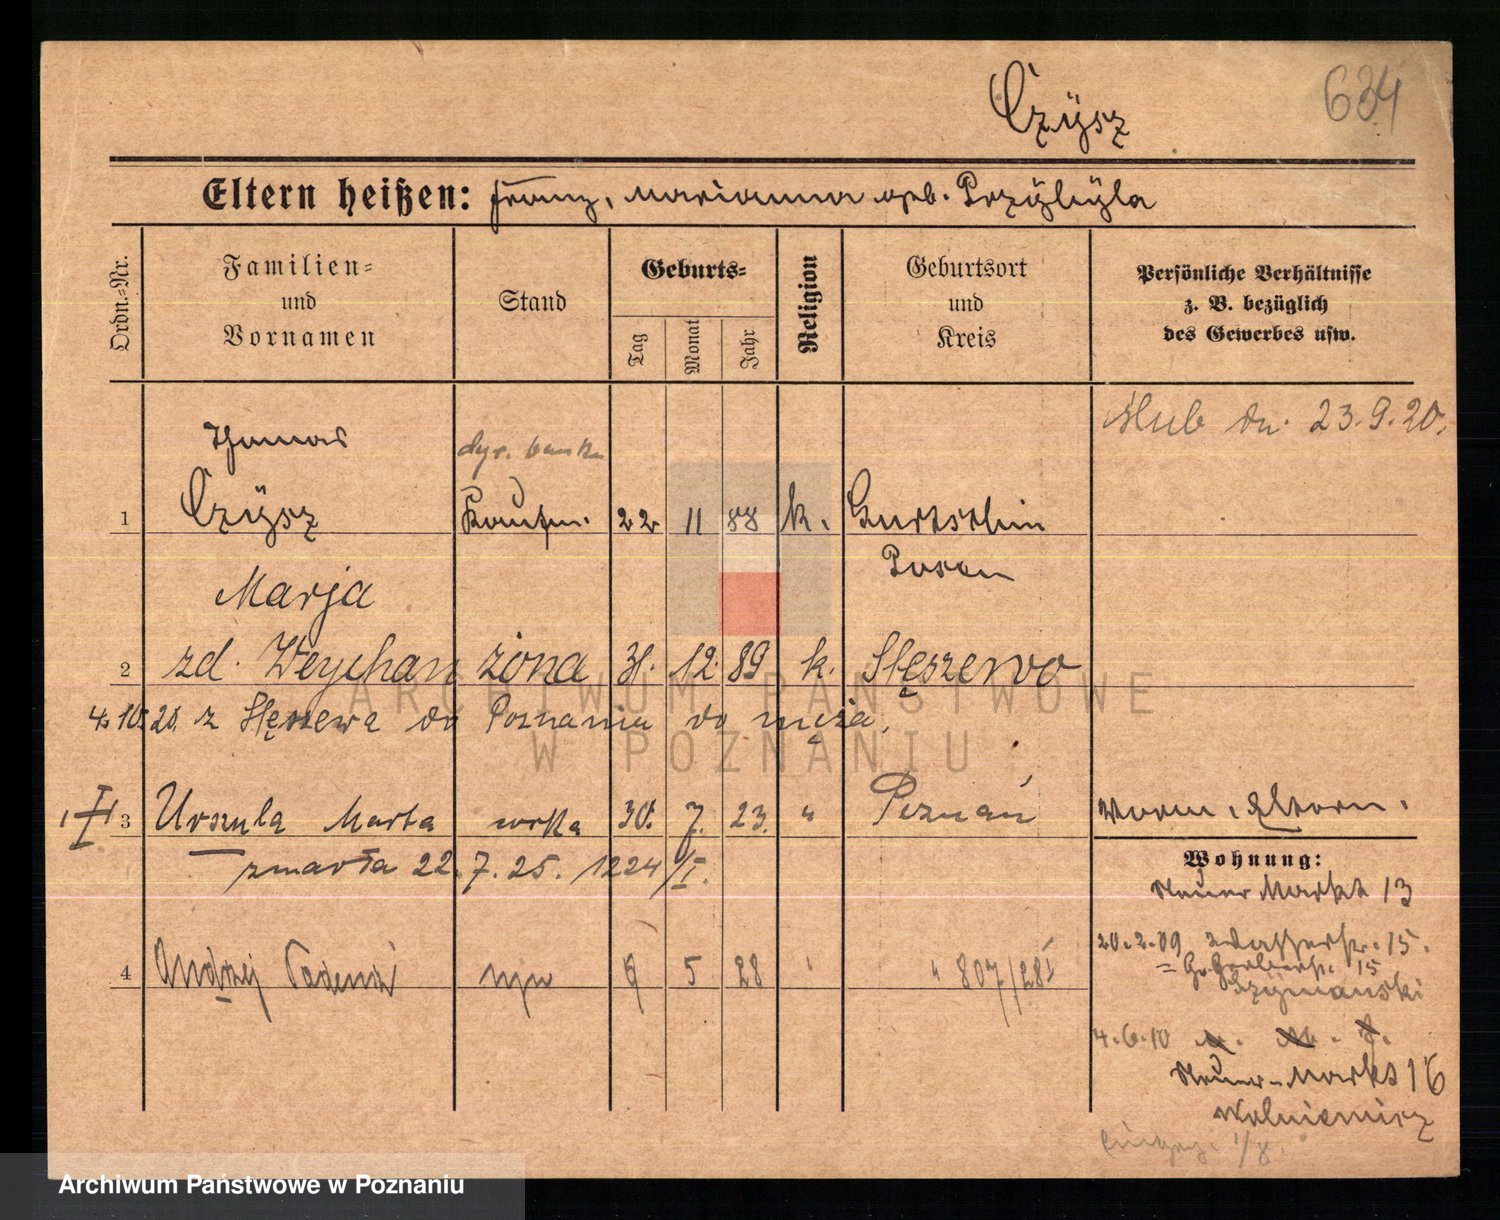 Czÿsz
634
Eltern heißen: Franz, Marianna geb. Przÿbÿla
Ordn.-Nr.
Familien- und Vornamen
Stand
Geburts-
Tag
Monat
Jahr
Religion
Geburtsort und Kreis
Persönliche Verhältnisse z. B. bezüglich des Gewerbes usw.
ślub dn. 23.9.20.
Thomas
dyr. banku
1 Czÿsz Kaufm. 22 11 88 k.
Posen
Marja
2 zd. Weychan żona 31. 12. 89 k. Stęszewo
4.10.20. z Stęszewa do Poznania do męża.
3 Urszula Marta córka 30. 7. 23. " Poznań
zmarła 22.7.25. 1224/I.
Wohnung:
Neuer Markt 13
4 Andrzej Tadeusz syn 9 5 28 " 807/28
20.2.09 Wasserstr. 15.
= Gr. Gerberstr. 15
Szymanski
4.6.10
Neuer-Markt 16
ARCHIWUM PAŃSTWOWE
W POZNANIU
Archiwum Państwowe w Poznaniu